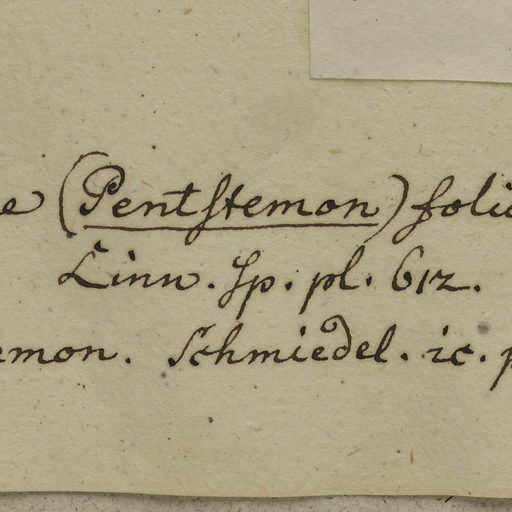 e (Pentſtemon) foli
Linn. ſp. pl. 612.
emon. Schmiedel. ic. p